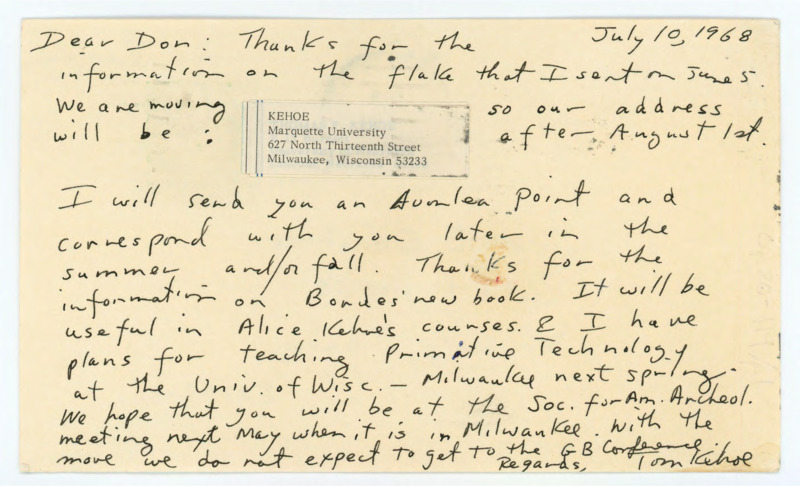 July 10, 1968
Dear Don: Thanks for the
information on the flake that I sent on June 5.
We are moving so our address
will be: after August 1st.
KEHOE
Marquette University
627 North Thirteenth Street
Milwaukee, Wisconsin 53233
I will send you an Avonlea Point and
correspond with you later in the
summer and/or fall. Thanks for the
information on Bordes' new book. It will be
useful in Alice Kehoe's courses. & I have
plans for teaching Primitive Technology
at the Univ. of Wisc. – Milwaukee next spring.
We hope that you will be at the Soc. for Am. Archeol.
meeting next May when it is in Milwaukee. With the
move we do not expect to get to the GB Conference.
Regards, Tom Kehoe